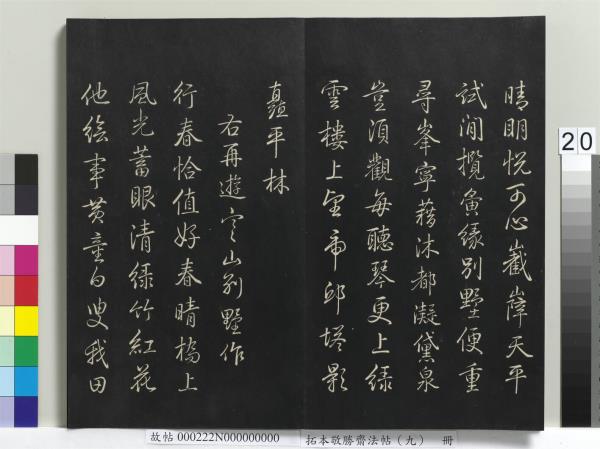 晴明悦可心巀嶭天平
試閒攬夤緣別墅便重
尋峯寧藉沐都凝黛泉
豈須觀每聽琴更上緑
雲樓上望虎邱塔影
矗平林
右再遊寒山別墅作
行春恰值好春晴橋上
風光蓄眼清緑竹紅花
他繪事黄童白叟我田
20
故帖 000222N000000000
拓本敬勝齋法帖（九） 冊